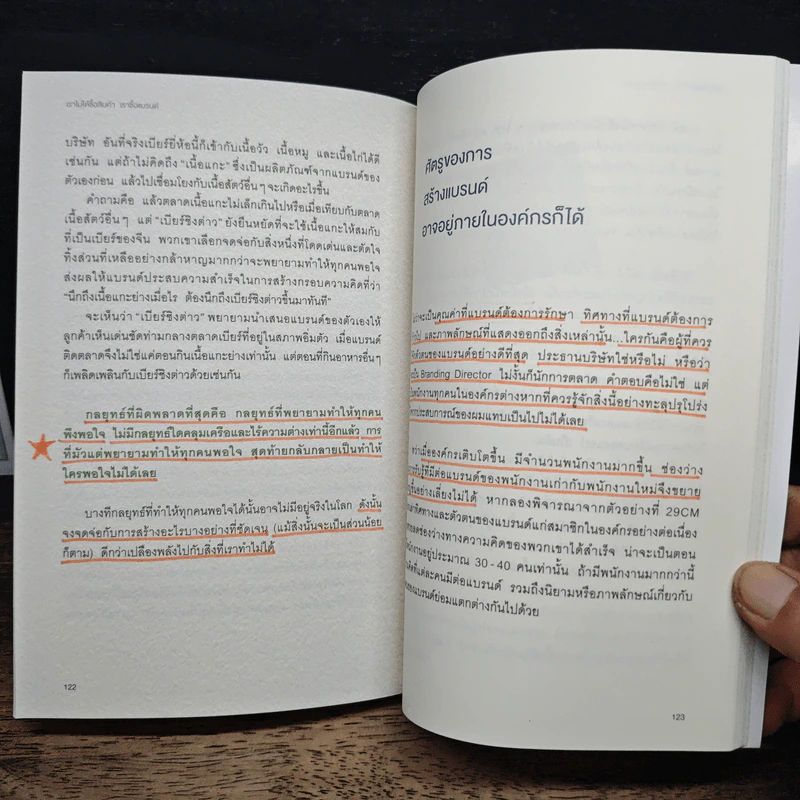 เราไม่ได้ซื้อสินค้า เราซื้อแบรนด์
บริษัท อันที่จริงเบียร์ยี่ห้อนี้ก็เข้ากับเนื้อวัว เนื้อหมู และเนื้อไก่ได้ดี
เช่นกัน แต่ถ้าไม่คิดถึง “เนื้อแกะ” ซึ่งเป็นผลิตภัณฑ์จากแบรนด์ของ
ตัวเองก่อน แล้วไปเชื่อมโยงกับเนื้อสัตว์อื่นๆ จะเกิดอะไรขึ้น
คำถามคือ แล้วตลาดเนื้อแกะไม่เล็กเกินไปหรือเมื่อเทียบกับตลาด
เนื้อสัตว์อื่นๆ แต่ “เบียร์ชิงต่าว” ยังยืนหยัดที่จะใช้เนื้อแกะให้สมกับ
ที่เป็นเบียร์ของจีน พวกเขาเลือกจดจ่อกับสิ่งหนึ่งที่โดดเด่นและตัดใจ
ทิ้งส่วนที่เหลืออย่างกล้าหาญมากกว่าจะพยายามทำให้ทุกคนพอใจ
ส่งผลให้แบรนด์ประสบความสำเร็จในการสร้างกรอบความคิดที่ว่า
“นึกถึงเนื้อแกะย่างเมื่อไร ต้องนึกถึงเบียร์ชิงต่าวขึ้นมาทันที”
จะเห็นว่า “เบียร์ชิงต่าว” พยายามนำเสนอแบรนด์ของตัวเองให้
ลูกค้าเห็นเด่นชัดท่ามกลางตลาดเบียร์ที่อยู่ในสภาพอิ่มตัว เมื่อแบรนด์
ติดตลาดจึงไม่ใช่แค่ตอนกินเนื้อแกะย่างเท่านั้น แต่ตอนที่กินอาหารอื่นๆ
ก็เพลิดเพลินกับเบียร์ชิงต่าวด้วยเช่นกัน
กลยุทธ์ที่ผิดพลาดที่สุดคือ กลยุทธ์ที่พยายามทำให้ทุกคน
พึงพอใจ ไม่มีกลยุทธ์ใดคลุมเครือและไร้ความต่างเท่านี้อีกแล้ว การ
ที่มัวแต่พยายามทำให้ทุกคนพอใจ สุดท้ายกลับกลายเป็นทำให้
ใครพอใจไม่ได้เลย
บางทีกลยุทธ์ที่ทำให้ทุกคนพอใจได้นั้นอาจไม่มีอยู่จริงในโลก ดังนั้น
จงจดจ่อกับการสร้างอะไรบางอย่างที่ชัดเจน (แม้สิ่งนั้นจะเป็นส่วนน้อย
ก็ตาม) ดีกว่าเปลืองพลังไปกับสิ่งที่เราทำไม่ได้
122
ศัตรูของการ
สร้างแบรนด์
อาจอยู่ภายในองค์กรก็ได้
จะเป็นคุณค่าที่แบรนด์ต้องการรักษา ทิศทางที่แบรนด์ต้องการ
ไป และภาพลักษณ์ที่แสดงออกถึงสิ่งเหล่านั้น...ใครกันคือผู้ที่ควร
ตัวตนของแบรนด์อย่างดีที่สุด ประธานบริษัทใช่หรือไม่ หรือว่า
เป็น Branding Director ไม่งั้นก็นักการตลาด คำตอบคือไม่ใช่ แต่
เป็นพนักงานทุกคนในองค์กรต่างหากที่ควรรู้จักสิ่งนี้อย่างทะลุปรุโปร่ง
จากประสบการณ์ของผมแทบเป็นไปไม่ได้เลย
ว่าเมื่อองค์กรเติบโตขึ้น มีจำนวนพนักงานมากขึ้น ช่องว่าง
การรับรู้ที่มีต่อแบรนด์ของพนักงานเก่ากับพนักงานใหม่จึงขยาย
ขึ้นอย่างเลี่ยงไม่ได้ หากลองพิจารณาจากตัวอย่างที่ 29CM
ทิศทางและตัวตนของแบรนด์แก่สมาชิกในองค์กรอย่างต่อเนื่อง
ลดช่องว่างทางความคิดของพวกเขาได้สำเร็จ น่าจะเป็นตอน
พนักงานอยู่ประมาณ 30-40 คนเท่านั้น ถ้ามีพนักงานมากกว่านี้
คิดที่แต่ละคนมีต่อแบรนด์ รวมถึงนิยามหรือภาพลักษณ์เกี่ยวกับ
ของแบรนด์ย่อมแตกต่างกันไปด้วย
123